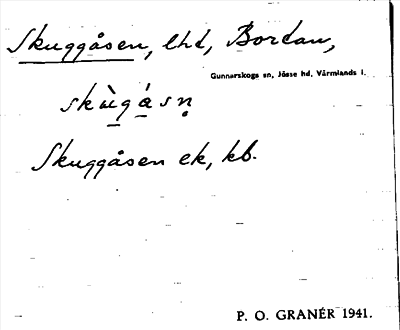 Skuggåsen, lhd, Bordan,
Gunnarskogs sn, Jösse hd, Värmlands l.
skùgá sṇ
Skuggåsen ek, kb.
P. O. GRANÉR 1941.